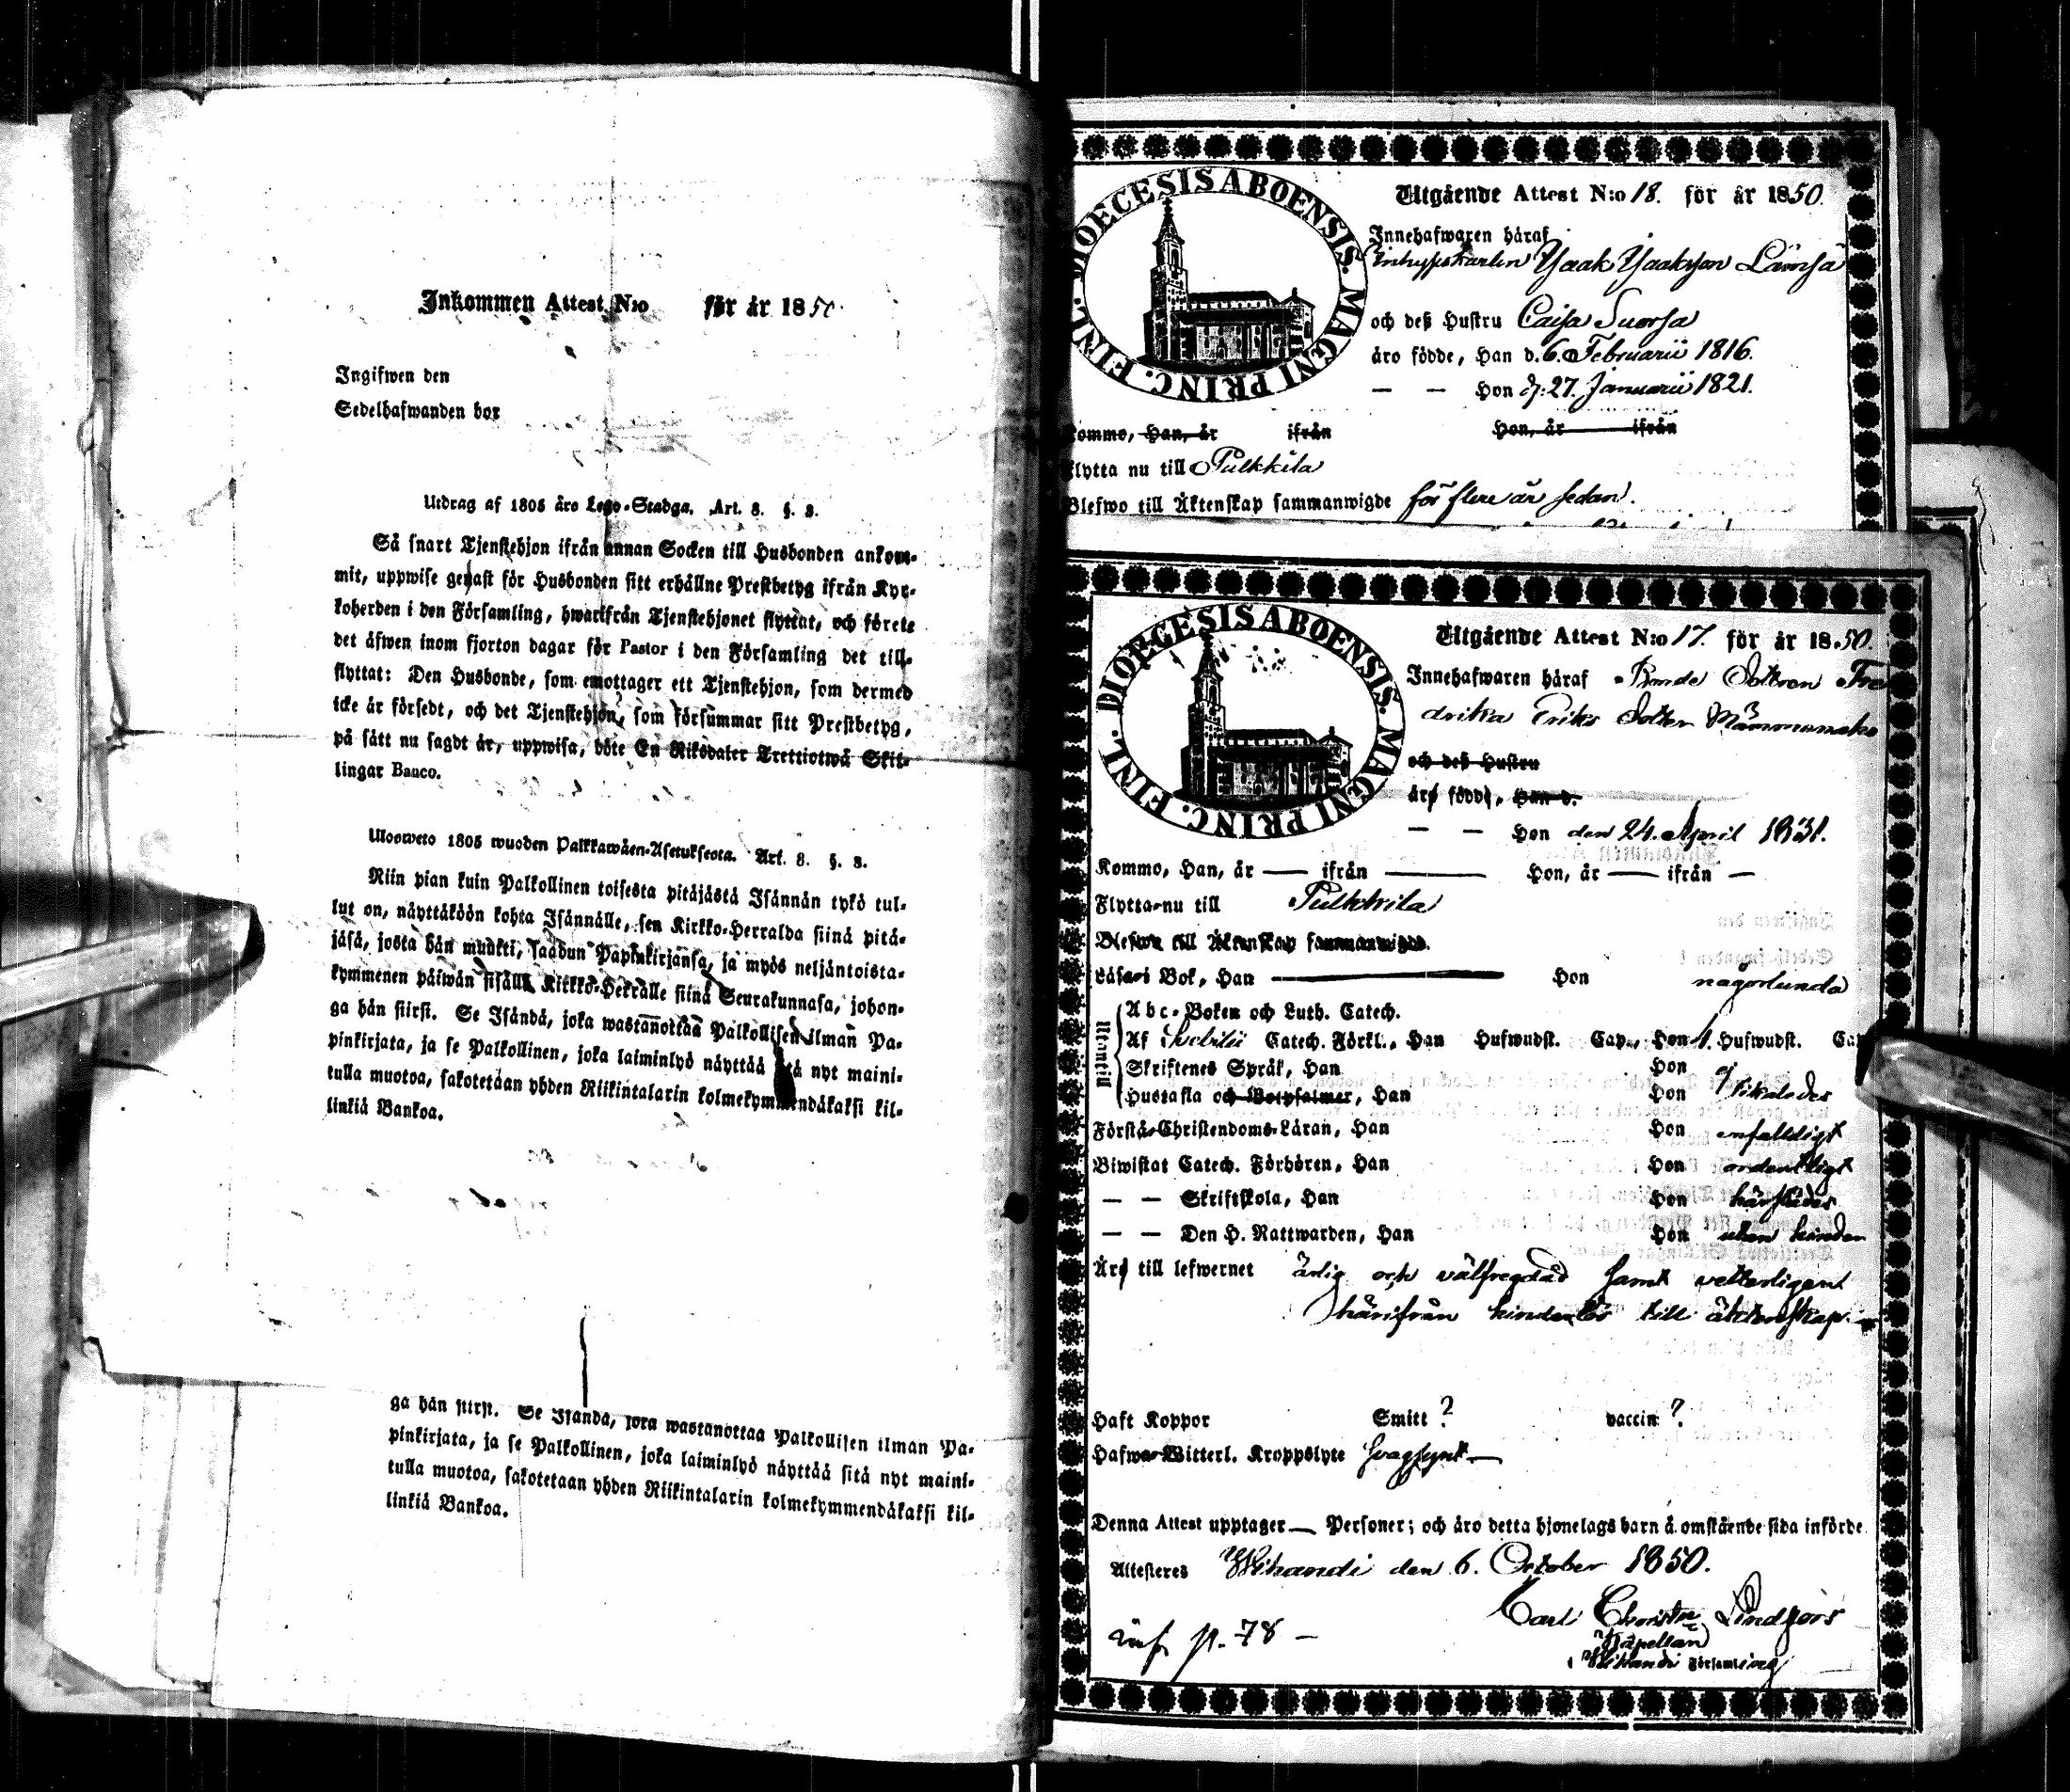 Inkommen Attest N:o för år 1850
Ingifwen den
Sedelhafwanden bor
Utdrag af 1805 års Lego-Stadga. Art. 8. §. 3.
Så snart Tjenstehjon ifrån annan Socken till Husbonden ankom-
mit, uppwise genast för Husbonden sitt erhållne Prestbetyg ifrån Kyr-
koherden i den Församling, hwarifrån Tjenstehjonet flyttat, och förete
det äfwen inom fjorton dagar för Pastor i den Församling det till-
flyttat: Den Husbonde, som emottager ett Tjenstehjon, som dermed
icke är försedt, och det Tjenstehjon, som försummar sitt Prestbetyg,
på sätt nu sagdt är, uppwisa, böte En Riksdaler Trettiotwå Skil-
lingar Banco.
Ulosweto 1805 wuoden Palkkawäen-Asetuksesta. Art. 8. §. 3.
Niin pian kuin Palkollinen toisesta pitäjästä Isännän tykö tul-
lut on, näyttäköön kohta Isännälle, sen Kirkko-Herralda siinä pitä-
jäsä, josta hän muutti, saadun Papinkirjansa, ja myös neljäntoista-
kymmenen päiwän sisällä Kirkko-Herralle siinä Seurakunnasa, johon-
ga hän siirsi. Se Isändä, joka wastanottaa Palkollisen ilman Pa-
pinkirjata, ja se Palkollinen, joka laiminlyö näyttää sitä nyt maini-
tulla muotoa, sakotetaan yhden Riikintalarin kolmekymmendäkaksi kil-
linkiä Bankoa.
ga hän siirsi. Se Isändä, joka wastanottaa Palkollisen ilman Pa-
pinkirjata, ja se Palkollinen, joka laiminlyö näyttää sitä nyt maini-
tulla muotoa, sakotetaan yhden Riikintalarin kolmekymmendäkaksi kil-
linkiä Bankoa.
DIOECESIS ABOENSIS. MAGNI PRINC. FINL.
Utgående Attest N:o 18. för år 1850.
Innehafwaren häraf
Inhyseskarlen Jaak Jaaksson Lämsä
och deß Hustru Caisa Suorsa
äro födde, Han d. 6. Februarii 1816.
— — Hon d: 27. Januarii 1821.
Kommo, Han, år ifrån Hon, år ifrån
Flytta nu till Pulkkila
Blefwo till Äktenskap sammanwigde för flere år sedan.
DIOECESIS ABOENSIS. MAGNI PRINC. FINL.
Utgående Attest N:o 17. för år 1850.
Innehafwaren häraf Bonde Dottren Fre
drika Eriks Dotter
och deß Hustru
äro födde, Han d.
— — Hon den 24. April 1831.
Kommo, Han, år — ifrån — Hon, år — ifrån —
Flytta nu till Pulkkila
Blefwo till Äktenskap sammanwigde.
Läsa i Bok, Han — Hon någorlunda
Utanтill
Abc-Boken och Luth. Catech.
Af Svebilii Catech. Förkl., Han Hufwudst. Cap., Hon 1. Hufwudst. Cap
Skriftenes Språk, Han Hon
Hustafla och Botpsalmer, Han Hon likaledes
Förstå Christendoms-Läran, Han Hon enfaldigt
Biwistat Catech. Förhören, Han Hon ordentligt
— — Skriftskola, Han Hon härstädes
— — Den H. Nattwarden, Han Hon utan hinder
Äro till lefwernet ärlig och välfregdad samt vetterligen
härifrån hinderlös till äktenskap. —
Haft Koppor Smitt ? vaccin ?
Hafwa Witterl. Kroppslyte svagsynt —
Denna Attest upptager — Personer; och äro detta hjonelags barn å omstående sida införde
Attesteres Wihandi den 6. October 1850.
Carl Christer Lindfors
Kapellan
i Wihandi Församling
inf. p. 78 —